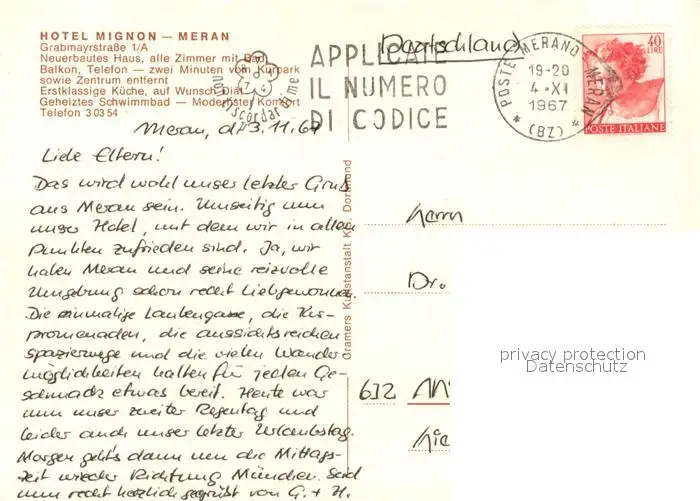 HOTEL MIGNON — MERAN
Grabmayrstraße 1/A
Neuerbautes Haus, alle Zimmer mit Bad,
Balkon, Telefon — zwei Minuten vom Kurpark
sowie Zentrum entfernt
Erstklassige Küche, auf Wunsch Diät
Geheiztes Schwimmbad — Modernster Komfort
Telefon 3 03 54
non ti scordar di me
APPLICATE
IL NUMERO
DI CODICE
Deutschland
POSTE MERANO MERAN
19-20
4-XI
1967
(BZ)
40
LIRE
POSTE ITALIANE
Meran, d. 3.11.67
Liebe Eltern!
Das wird wohl unser letzter Gruß
aus Meran sein. Umseitig nun
unser Hotel, mit dem wir in allen
Punkten zufrieden sind. Ja, wir
haben Meran und seine reizvolle
Umgebung schon recht liebgewonnen.
Die einmalige Laubengasse, die Kur-
promenaden, die aussichtsreichen
Spazierwege und die vielen Wander
möglichkeiten halten für jeden Ge-
schmack etwas bereit. Heute war
nun unser zweiter Regentag und
leider auch unser letzter Urlaubstag.
Morgen geht's dann um die Mittags-
zeit wieder Richtung München. Seid
nun recht herzlich gegrüßt von G. + H.
Gramers Kunstanstalt KG. Dortmund
Herrn
Dr.
632
privacy protection
Datenschutz